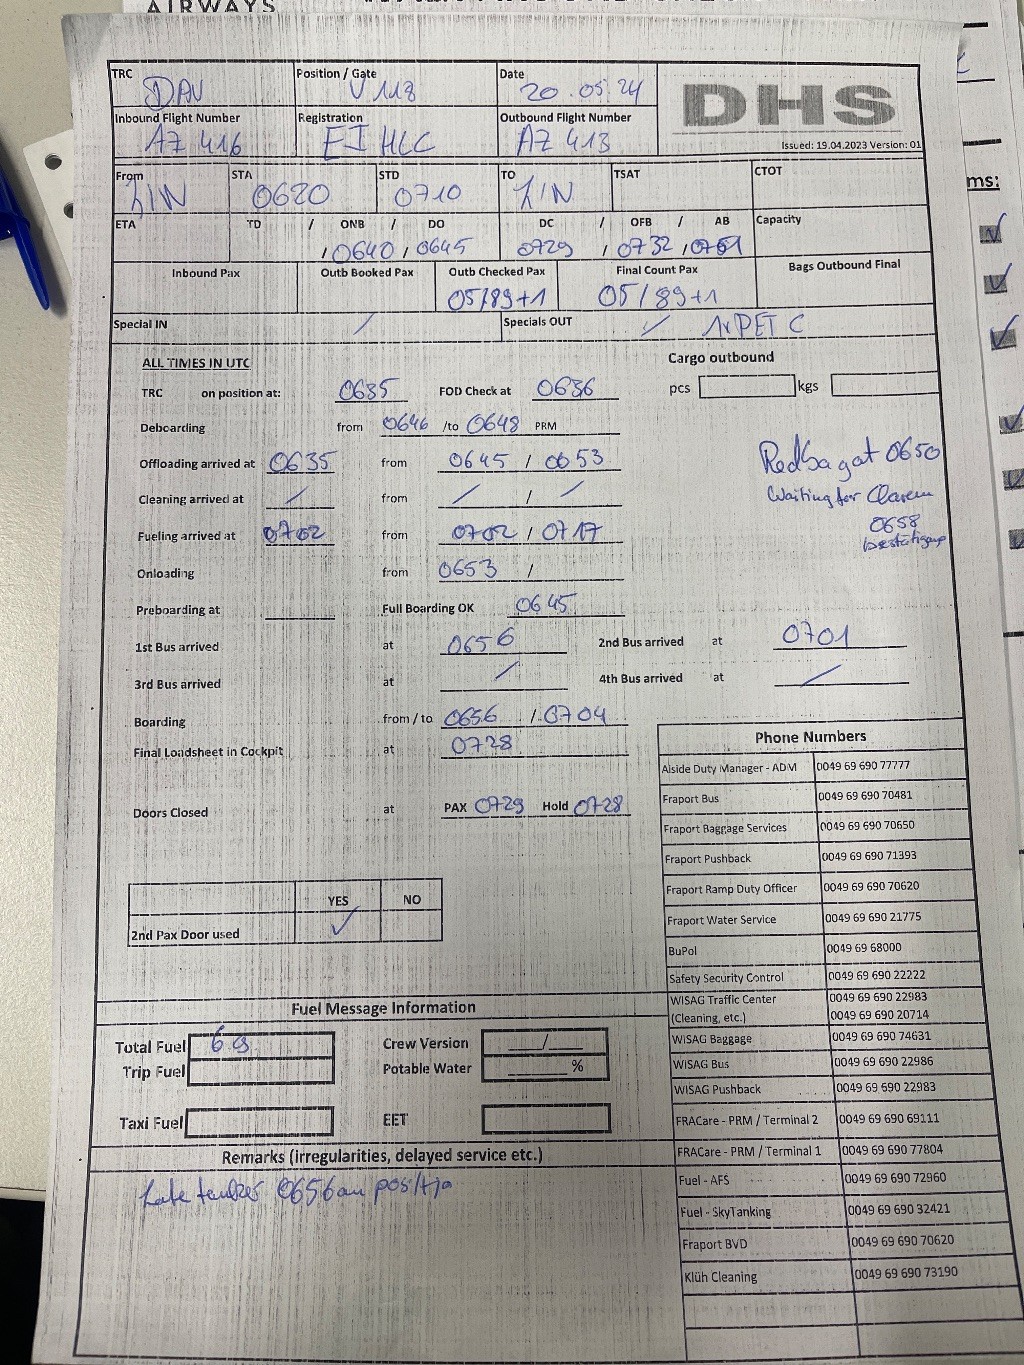 AIRWAYS
TRC DAV Position / Gate V 118 Date 20.05.24 DHS
Issued: 19.04.2023 Version: 01
Inbound Flight Number AZ 416 Registration EI HLC Outbound Flight Number AZ 413
From LIN STA 0620 STD 0710 TO LIN TSAT CTOT
ETA TD / ONB / DO DC / OFB / AB Capacity
/ 0640 / 0645 0729 / 0732 /
Inbound Pax Outb Booked Pax Outb Checked Pax Final Count Pax Bags Outbound Final
05/89+1 05/89+1
Special IN / Specials OUT ✓ 1x PET C
ms:
ALL TIMES IN UTC Cargo outbound
TRC on position at: 0635 FOD Check at 0636 pcs kgs
Deboarding from 0646 /to 0648 PRM
Offloading arrived at 0635 from 0645 / 0653
Red at 0650
Cleaning arrived at / from / / /
Waiting for
0658
Fueling arrived at 0702 from 0702 / 0717
Onloading from 0653 /
Preboarding at Full Boarding OK 0645
1st Bus arrived at 0656 2nd Bus arrived at 0701
3rd Bus arrived at / 4th Bus arrived at /
Boarding from / to 0656 / 0704
Final Loadsheet in Cockpit at 0728
Doors Closed at PAX 0729 Hold 0728
YES NO
2nd Pax Door used ✓
Phone Numbers
Alside Duty Manager - ADM 0049 69 690 77777
Fraport Bus 0049 69 690 70481
Fraport Baggage Services 0049 69 690 70650
Fraport Pushback 0049 69 690 71393
Fraport Ramp Duty Officer 0049 69 690 70620
Fraport Water Service 0049 69 690 21775
BuPol 0049 69 68000
Safety Security Control 0049 69 690 22222
WISAG Traffic Center 0049 69 690 22983
(Cleaning, etc.) 0049 69 690 20714
WISAG Baggage 0049 69 690 74631
WISAG Bus 0049 69 690 22986
WISAG Pushback 0049 69 690 22983
FRACare - PRM / Terminal 2 0049 69 690 69111
FRACare - PRM / Terminal 1 0049 69 690 77804
Fuel - AFS 0049 69 690 72960
Fuel - SkyTanking 0049 69 690 32421
Fraport BVD 0049 69 690 70620
Klüh Cleaning 0049 69 690 73190
Fuel Message Information
Total Fuel Crew Version /
Trip Fuel Potable Water %
Taxi Fuel EET
Remarks (irregularities, delayed service etc.)
Late 0656 position